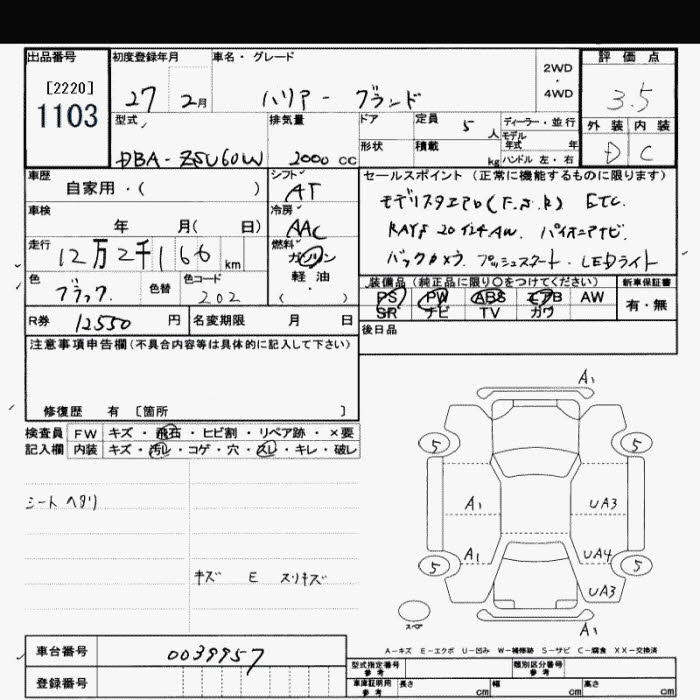 出品番号 初度登録年月 車名・グレード 2WD・4WD 評価点
[2220] 1103 27 2月 ハリアー ブランド 3.5
型式 排気量 ドア 定員 5人 ディーラー・並行 外装 内装
形状 積載 kg モデル年式 年 ハンドル 左・右
DBA-ZSU60W 2000 cc D C
車歴 シフト セールスポイント (正常に機能するものに限ります)
自家用・( ) AT モデリスタエアロ(F.S.R) ETC.
車検 冷房 RAYS 20インチAW. パイオニアナビ.
年 月( 日) AAC
走行 燃料 バックカメラ. プッシュスタート. LEDライト
12万2千166 km ガソリン
軽・油
( )
色 色替 色コード 装備品 (純正品に限り○をつけてください) 新車保証書
ブラック. 202 PS PW ABS エアB AW 有・無
SR ナビ TV カワ
R券 12550 円 名変期限 月 日 後日品
注意事項申告欄(不具合内容等は具体的に記入して下さい)
修復歴 有 〔箇所 〕
検査員 FW キズ・飛石・ヒビ割・リペア跡・×要
記入欄 内装 キズ・汚レ・コゲ・穴・スレ・キレ・破レ
シート ヘタリ
キズ E スリキズ
A1
5 5
A1 UA3
A1 UA4
5 5
UA3
スペア A1
A-キズ E-エクボ U-凹み W-補修跡 S-サビ C-腐食 XX-交換済
車台番号 0039957 型式指定番号 参考 類別区分番号 参考
登録番号 車庫証明用 参考 長さ cm 幅 cm 高さ cm